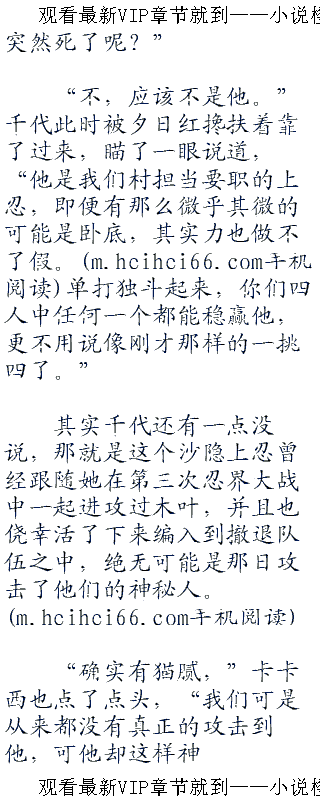 观看最新VIP章节就到——小说检
突然死了呢？”
“不，应该不是他。”
千代此时被夕日红搀扶着靠
了过来，瞄了一眼说道，
“他是我们村担当要职的上
忍，即便有那么微乎其微的
可能是卧底，其实力也做不
了假。(m.hcihci66.com手机
阅读)单打独斗起来，你们四
人中任何一个都能稳赢他，
更不用说像刚才那样的一挑
四了。”
其实千代还有一点没
说，那就是这个沙隐上忍曾
经跟随她在第三次忍界大战
中一起进攻过木叶，并且也
侥幸活了下来编入到撤退队
伍之中，绝无可能是那日攻
击了他们的神秘人。
(m.hcihci66.com手机阅读)
“确实有猫腻，”卡卡
西也点了点头，“我们可是
从来都没有真正的攻击到
他，可他却这样神
观看最新VIP章节就到——小说检